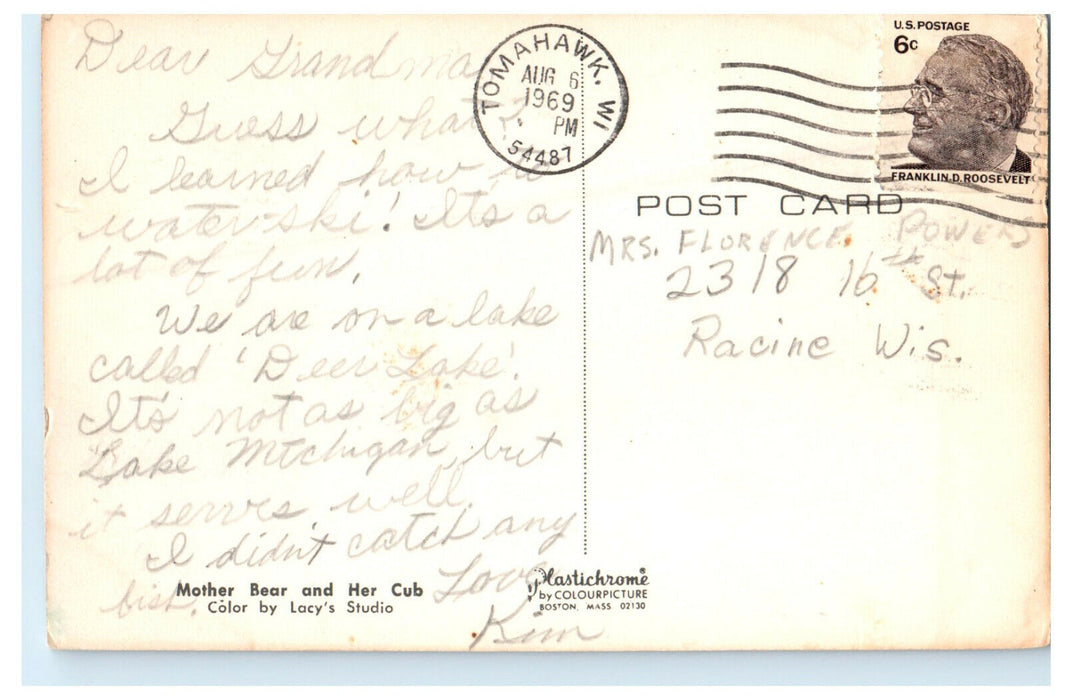 Dear Grandma
Guess what?
I learned how to
water-ski! It's a
lot of fun.
We are on a lake
called 'Deer Lake'.
It's not as big as
Lake Michigan, but
it serves well.
I didn't catch any
fish.
Love
Kim
Mother Bear and Her Cub
Color by Lacy's Studio
Plastichrome®
by COLOURPICTURE
BOSTON, MASS 02130
TOMAHAWK, WI
AUG 6
1969
PM
54487
U.S. POSTAGE
6c
FRANKLIN D. ROOSEVELT
POST CARD
MRS. FLORENCE POWERS
2318 16th St.
Racine Wis.